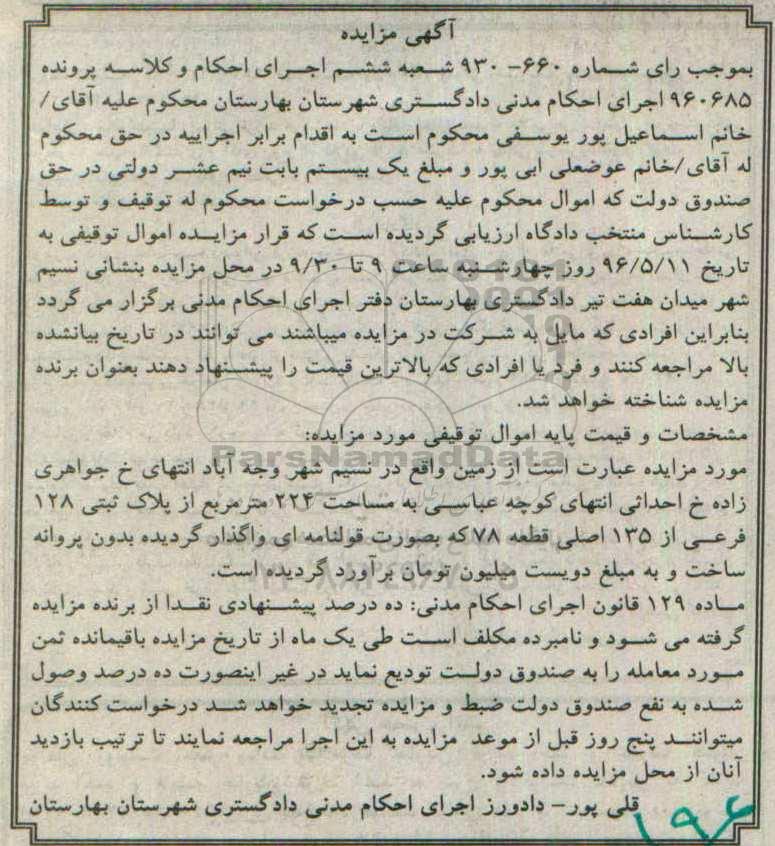 آگهی مزایده
بموجب رای شماره ۶۶۰-۹۳۰ شعبه ششم اجرای احکام و کلاسه پرونده
۹۶۰۶۸۵ اجرای احکام مدنی دادگستری شهرستان بهارستان محکوم علیه آقای/
خانم اسماعیل پور یوسفی محکوم است به اقدام برابر اجراییه در حق محکوم
له آقای/خانم عوضعلی ابی پور و مبلغ یک بیستم بابت نیم عشر دولتی در حق
صندوق دولت که اموال محکوم علیه حسب درخواست محکوم له توقیف و توسط
کارشناس منتخب دادگاه ارزیابی گردیده است که قرار مزایده اموال توقیفی به
تاریخ ۹۶/۵/۱۱ روز چهارشنبه ساعت ۹ تا ۹/۳۰ در محل مزایده بنشانی نسیم
شهر میدان هفت تیر دادگستری بهارستان دفتر اجرای احکام مدنی برگزار می گردد
بنابراین افرادی که مایل به شرکت در مزایده میباشند می توانند در تاریخ بیانشده
بالا مراجعه کنند و فرد یا افرادی که بالاترین قیمت را پیشنهاد دهند بعنوان برنده
مزایده شناخته خواهد شد.
مشخصات و قیمت پایه اموال توقیفی مورد مزایده:
ParsNamadData
مورد مزایده عبارت است از زمین واقع در نسیم شهر وجه آباد انتهای خ جواهری
زاده خ احداثی انتهای کوچه عباسی به مساحت ۲۲۴ مترمربع از پلاک ثبتی ۱۲۸
فرعی از ۱۳۵ اصلی قطعه ۷۸ که بصورت قولنامه ای واگذار گردیده بدون پروانه
ساخت و به مبلغ دویست میلیون تومان برآورد گردیده است.
ماده ۱۲۹ قانون اجرای احکام مدنی: ده درصد پیشنهادی نقدا از برنده مزایده
گرفته می شود و نامبرده مکلف است طی یک ماه از تاریخ مزایده باقیمانده ثمن
مورد معامله را به صندوق دولت تودیع نماید در غیر اینصورت ده درصد وصول
شده به نفع صندوق دولت ضبط و مزایده تجدید خواهد شد درخواست کنندگان
میتوانند پنج روز قبل از موعد مزایده به این اجرا مراجعه نمایند تا ترتیب بازدید
آنان از محل مزایده داده شود.
قلی پور- دادورز اجرای احکام مدنی دادگستری شهرستان بهارستان
۱۹۶